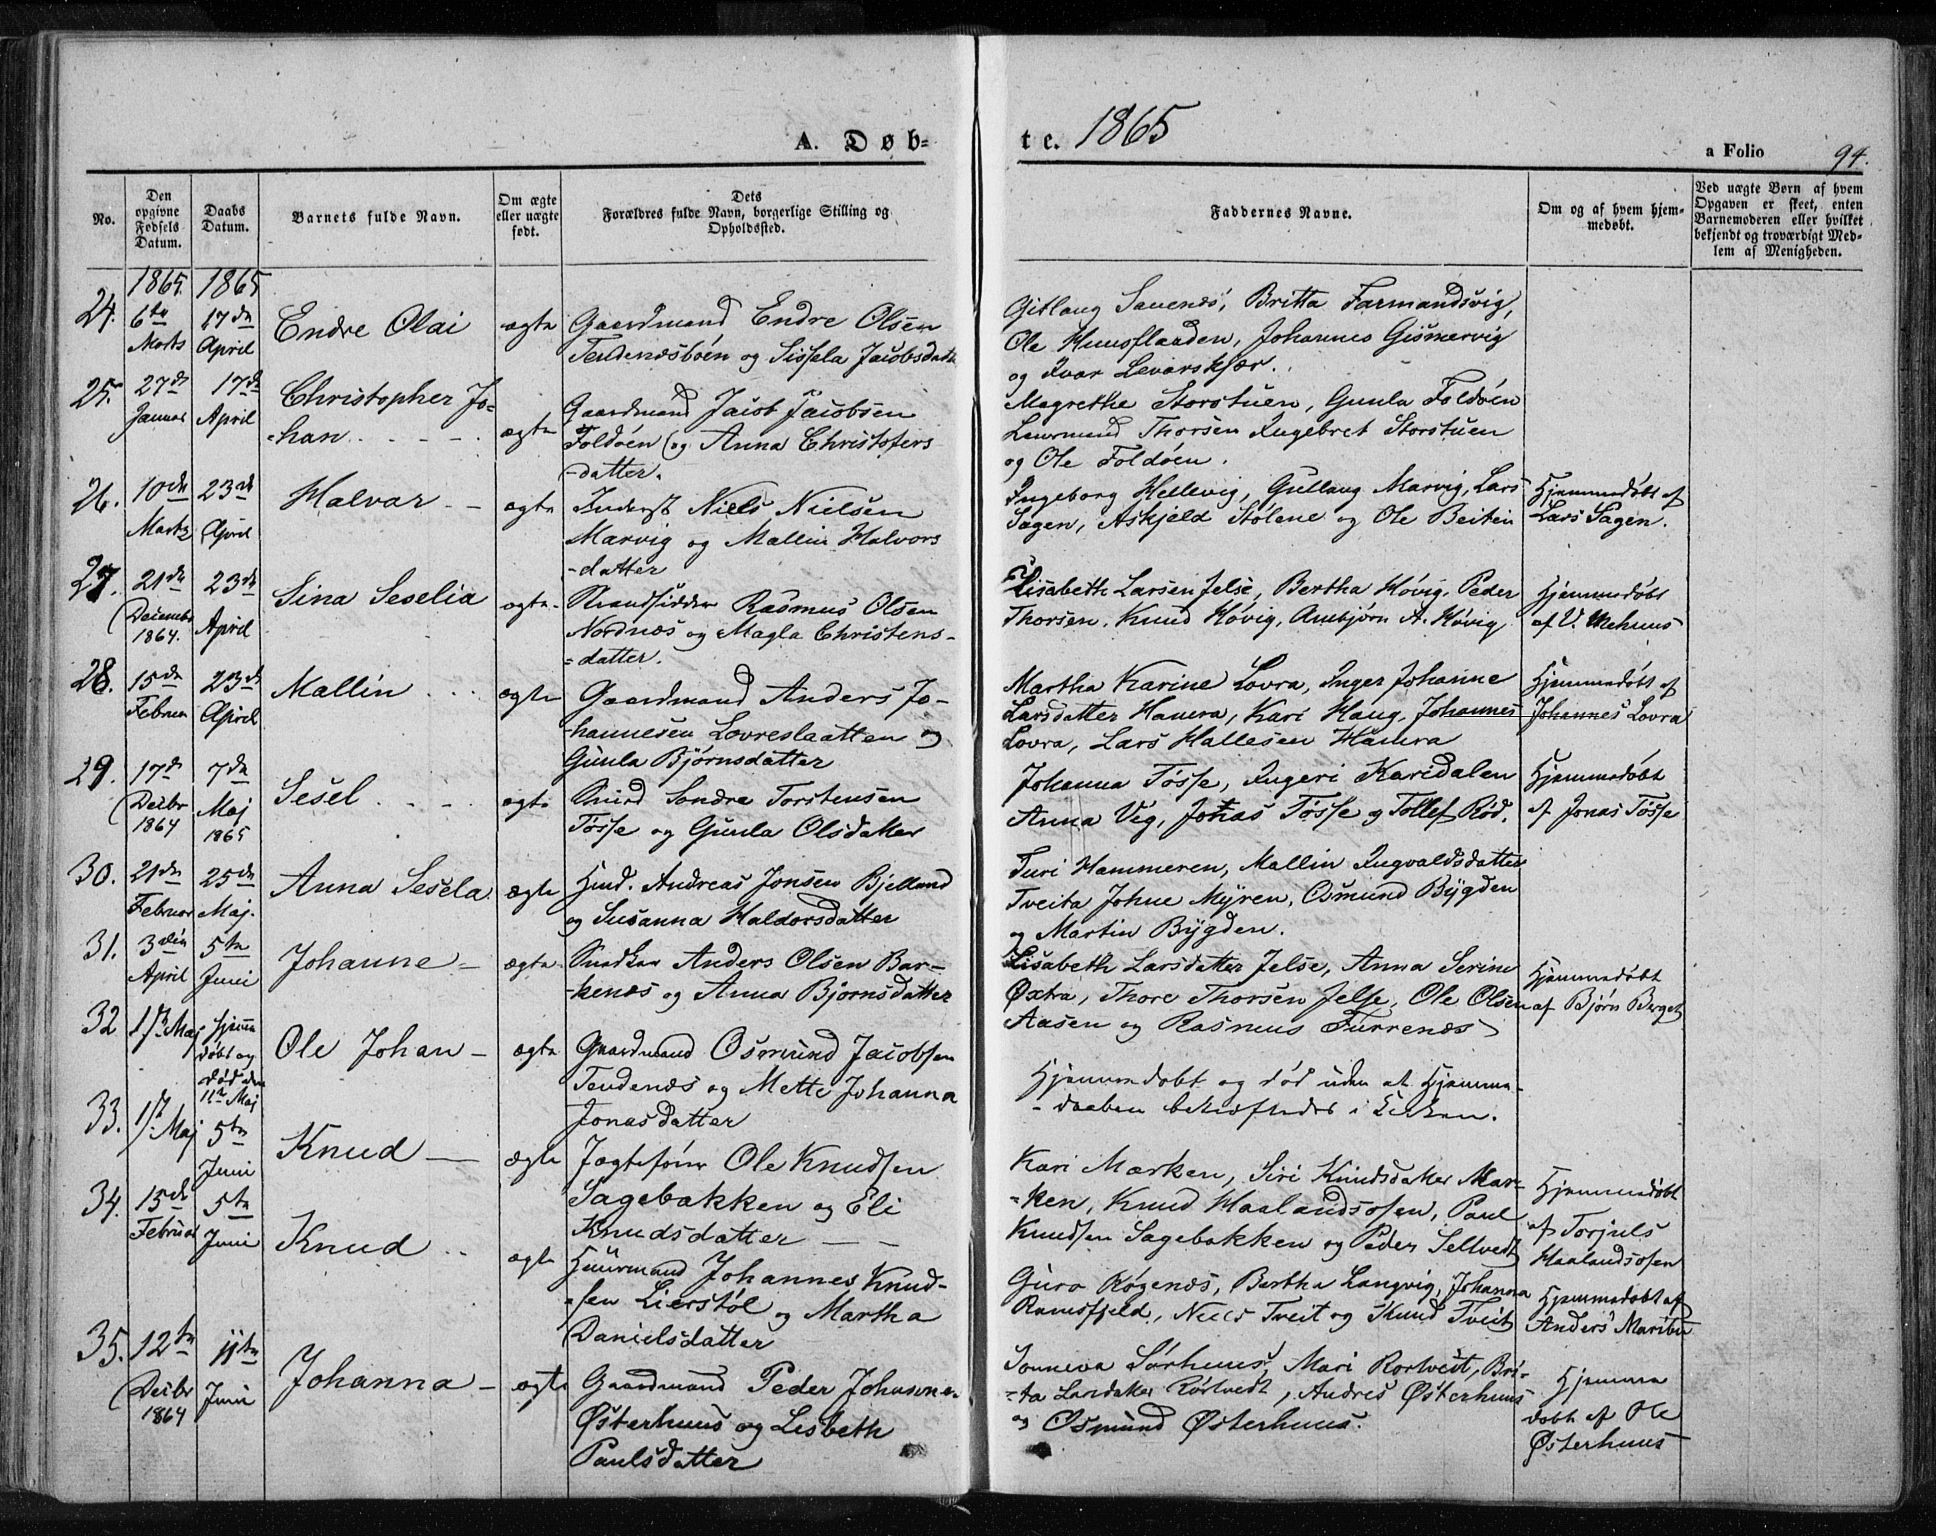 A. Døb-
te. 1865
a Folio 94.
No.
Den opgivne Fødsels Datum.
Daabs Datum.
Barnets fulde Navn.
Om ægte eller uægte født.
Dets Forældres fulde Navn, borgerlige Stilling og Opholdssted.
Faddernes Navne.
Om og af hvem hjemmedøbt.
Ved uægte Børn af hvem
Opgaven er skeet, enten
Barnemoderen eller hvilket
bekjendt og troværdigt Med-
lem af Menigheden.
1865. 1865
24. 6te Marts 17de April Endre Olai ægte
Gaardmand Endre Olsen
og Sissela Jacobsdatt
Gitlaug Sauenæs, Britta Farmandsvig,
Ole Johannes Gismervig
og Ivar Levarskjær.
25. 27de Januar 17de April Christopher Jo-
-han ægte
Gaardmand Jacob Jacobsen
Foldøen og Anna Christofers
-datter.
Magrethe Storstuen, Gunla Foldøen
Thorsen Ingebret Storstuen
og Ole Foldøen.
26. 10de Marts 23de April Halvar ægte
Inderst Niels Nielsen
Marvig og Mallin Halvors
-datter
Ingeborg Hellevig, Gullaug Marvig, Lars
Sagen, Askjeld Stølene og Ole Beitein
Hjemmedøbt af
Lars Sagen.
27. 21de Decembr 1864. 23de April Sina Seselia ægte
Strandsidder Rasmus Olsen
Nordnæs og Magla Christens-
-datter.
Lisabeth Larsen Jelse, Bertha Høvig, Peder
Thorsen, Knud Høvig, Ambjørn A. Høvig
Hjemmedøbt
af V. Mehuus
28. 15de Februar 23de April Mallin ægte
Gaardmand Anders Jo-
-hannesen Lovreslaatten og
Gunla Bjørnsdatter
Martha Karine Lovra, Inger Johanne
Larsdatter Hamra, Kari Haug, Johannes
Lovra, Lars Hallesen Hamra
Hjemmedøbt af
Johannes Lovra
29. 17de Decbr 1864 7de Maj 1865 Sesel ægte
Sondre Torstensen
Tøsse og Gunla Olsdatter
Johanna Tøsse, Ingeri Karidalen
Anna Veg, Jonas Tøsse og Tollef Rød.
Hjemmedøbt
af Jonas Tøsse
30. 21de Februar 25de Maj. Anna Sesela ægte
Husmd. Andreas Jonsen Bjelland
og Susanna Haldorsdatter
Turi Hammeren, Mallin Ingvaldsdatter
Tveita Johne Myren, Osmund Bygden
og Martin Bygden.
31. 3die April 5te Juni Johanne ægte
Snedker Anders Olsen Bar-
-kenæs og Anna Bjørnsdatter
Lisabeth Larsdatter Jelse, Anna Serine
Øxtra, Thore Thorsen Jelse, Ole Olsen
Aasen og Rasmus Furrenæs
Hjemmedøbt
af Bjørn Berget
32 1ste Maj hjemmedøbt og død den 11te Maj Ole Johan ægte
Gaardmand Osmund Jacobsen
Tendenæs og Mette Johanna
Jonasdatter
Hjemmedøbt og død uden at Hjemme-
-daaben bekræftedes i Kirken.
33. 1ste Maj 5te Juni Knud ægte
Jagtefører Ole Knudsen
Sagebakken og Eli
Knudsdatter
Kari Marken, Siri Knudsdatter Mar-
-ken, Knud Haalandsosen, Paul
Knudsen Sagebakken og Peder Selvedt
Hjemmedøbt
af Torjuls
Haalandsosen
34. 15de Februar 5te Juni Knud ægte
Huusmand Johannes Knud-
-sen Lierstøl og Martha
Danielsdatter
Guro Røgenæs, Bertha Langvig, Johanna
Ramsfjeld, Niels Tveit og Knud Tveit
Hjemmedøbt af
Anders Maribu
35. 12te Decbr 1864 11te Juni Johanna ægte
Gaardmand Peder Johnsen
Østerhuus og Lisbeth
Paulsdatter
Sonneva Sørhuus, Mari Rortvedt, Bri-
-ta Larsdatter Rørtvedt, Andres Østerhuus
og Osmund Østerhuus.
Hjemme
døbt af Ole
Østerhuus